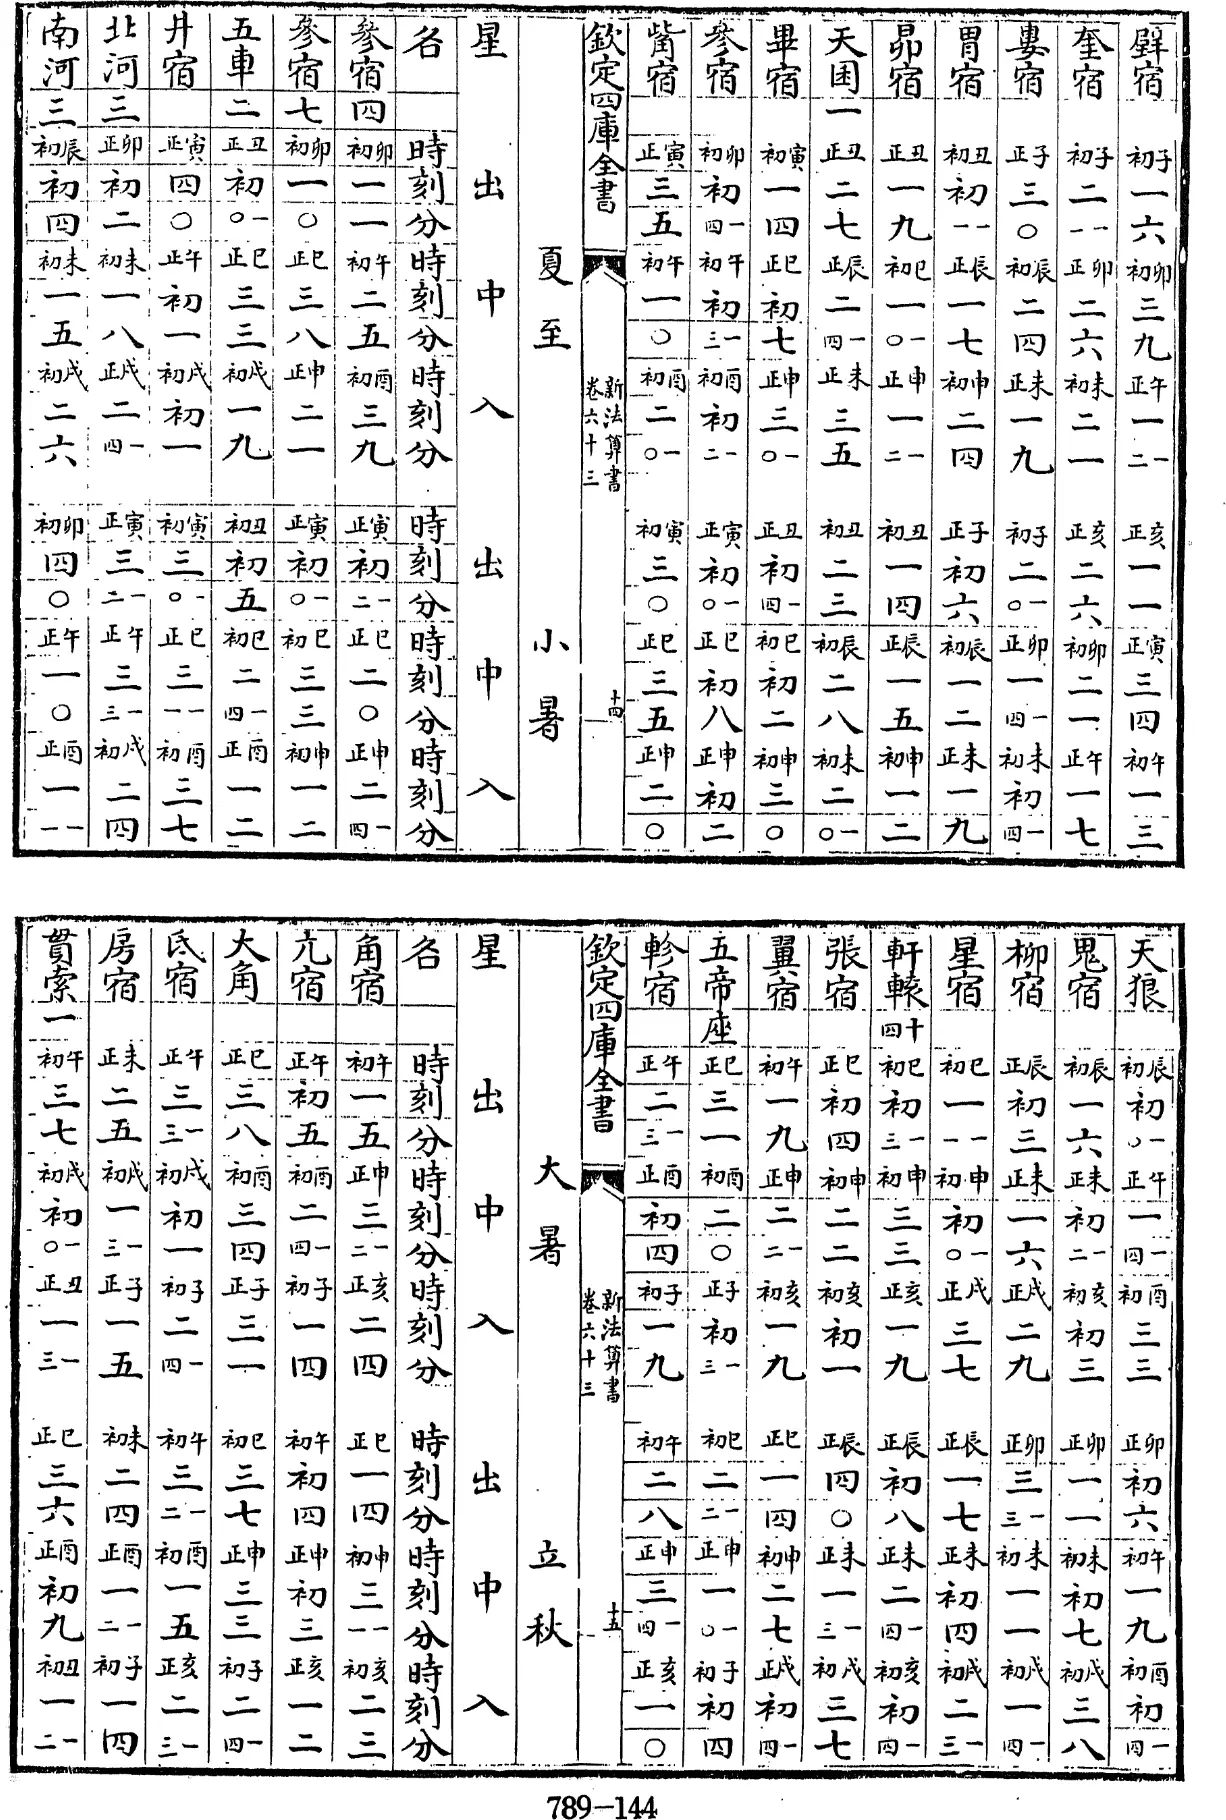 壁宿 子初 一 六 卯初 三 九 午正 一 一二 亥正 一 一 寅正 三 四 午初 一 三
奎宿 子初 二 一一 卯正 二 六 未初 二 一 亥正 二 六 卯初 二 一 午正 一 七
婁宿 子正 三 〇 辰初 二 四 未正 一 九 子初 二 一〇 卯正 一 一四 未初 初 一四
胃宿 丑初 初 一一 辰正 一 七 申初 二 四 子正 初 六 辰初 一 二 未正 一 九
昴宿 丑正 一 九 巳初 一 一〇 申正 一 一二 丑初 一 四 辰正 一 五 申初 一 二
天囷一 丑正 二 七 辰正 二 一四 未正 三 五 丑初 二 三 辰初 二 八 未初 二 一〇
畢宿 寅初 一 四 巳正 初 七 申正 三 一〇 丑正 初 一四 巳初 初 二 申初 三 〇
參宿 卯初 初 一四 午初 初 一三 酉初 初 一二 寅正 初 一〇 巳正 初 八 申正 初 二
觜宿 寅正 三 五 午初 一 〇 酉初 二 一〇 寅初 三 〇 巳正 三 五 申正 二 〇
欽定四庫全書 新法算書 卷六十三 十四
夏至 小暑
星 出 中 入 出 中 入
名 時刻分 時刻分 時刻分 時刻分 時刻分 時刻分
參宿四 卯初 一 一 午初 二 五 酉初 三 九 寅正 初 一二 巳正 二 〇 申正 二 一四
參宿七 卯初 一 〇 巳正 三 八 申正 二 一 寅正 初 一〇 巳初 三 三 申初 一 二
五車二 丑正 初 一〇 巳正 三 三 戌初 一 九 丑初 初 五 巳初 二 一四 酉正 一 二
井宿 寅正 四 〇 午正 初 一 戌初 初 一 寅初 三 一〇 巳正 三 一一 酉初 三 七
北河三 卯正 初 二 未初 一 八 戌正 二 一四 寅正 三 一二 午正 三 一三 戌初 二 四
南河三 辰初 初 四 未初 一 五 戌初 二 六 卯初 四 〇 午正 一 〇 酉正 一 一一
天狼 辰初 初 一〇 午正 一 一四 酉初 三 三 卯正 初 六 午初 一 九 酉初 初 一四
鬼宿 辰初 一 六 未正 初 一二 亥初 初 三 卯正 一 一 未初 初 七 戌初 三 八
柳宿 辰正 初 三 未正 一 六 戌正 二 九 卯正 三 一三 未初 一 一 戌初 一 一四
星宿 巳初 一 一一 申初 初 一〇 戌正 三 七 辰正 一 七 未正 初 四 戌初 二 一三
軒轅十四 巳初 初 一三 申初 三 三 亥正 一 九 辰正 初 八 未正 二 一四 亥初 初 一四
張宿 巳正 初 四 申初 二 二 亥初 初 一 辰正 四 〇 未正 一 一三 戌初 三 七
翼宿 午初 一 九 申正 二 一二 亥初 一 九 巳正 一 四 申初 二 七 戌正 初 一四
五帝座 巳正 三 一 酉初 二 〇 子正 初 一三 巳初 二 一二 申正 一 一〇 子初 初 四
軫宿 午正 二 一三 酉正 初 四 子初 一 九 午初 二 八 申正 三 一四 亥正 一 〇
欽定四庫全書 新法算書 卷六十三 十五
大暑 立秋
星 出 中 入 出 中 入
名 時刻分 時刻分 時刻分 時刻分 時刻分 時刻分
角宿 午初 一 五 申正 三 一二 亥正 二 四 巳正 一 四 申初 三 一一 亥初 二 三
亢宿 午正 初 五 酉初 二 一四 子初 一 四 午初 初 四 申正 初 三 亥正 一 二
大角 巳正 三 八 酉初 三 四 子正 三 一 巳初 三 七 申正 三 三 子初 二 一四
氐宿 午正 三 一三 戌初 初 一 子初 二 一四 午初 三 一二 酉初 一 五 亥正 二 一三
房宿 未正 二 五 戌初 一 一三 子正 一 五 未初 二 四 酉正 一 一二 子初 一 四
貫索一 午初 三 七 戌初 初 一〇 丑正 一 一三 巳正 三 六 酉正 初 九 丑初 一 一二
789-144